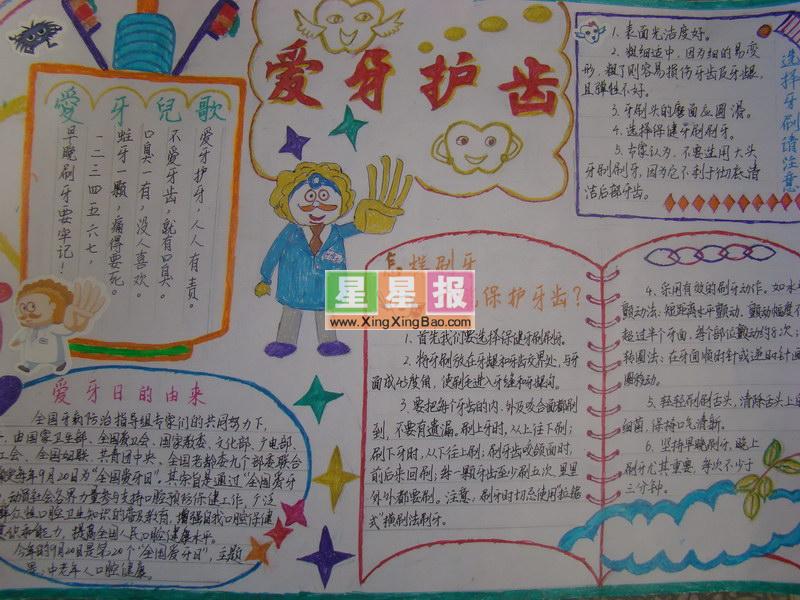 爱牙护齿
愛牙兒歌
爱牙护牙，人人有责。
不爱牙齿，就有口臭。
口臭一有，没人喜欢。
蛀牙一颗，痛得要死。
一二三四五六七，
早晚刷牙要牢记！
爱牙日的由来
全国牙病防治指导组专家们的共同努力下，
由国家卫生部、全国爱卫会、国家教委、文化部、广电部、
工会、全国妇联、共青团中央、全国老龄委九个部委联合
每年9月20日为“全国爱牙日”。其宗旨是通过“全国爱牙
动员社会各界力量参与支持口腔预防保健工作，广泛
群众性口腔卫生知识的普及教育，增强自我口腔保健
识和能力，提高全国人民口腔健康水平。
今年的9月20日是第20个“全国爱牙日”，主题
是：中老年人口腔健康。
选择牙刷请注意
1. 表面光洁度好。
2. 粗细适中，因为细的易变
形，粗了则容易损伤牙齿及牙龈，
且弹性不好。
3. 牙刷头的磨面应圆滑。
4. 选择保健牙刷刷牙。
5. 专家认为，不要选用大头
牙刷刷牙，因为它不利于彻底清
洁后部牙齿。
怎样刷牙
保护牙齿？
1. 首先我们要选择保健牙刷刷牙。
2. 将牙刷放在牙龈和牙齿交界处，与牙
面成45度角，使刷毛进入牙缝和牙龈沟。
3. 要把每个牙齿的内、外及咬合面都刷
到，不要有遗漏。刷上牙时，从上往下刷；
刷下牙时，从下往上刷；刷牙齿咬颌面时，
前后来回刷；每一颗牙齿至少刷五次，里里
外外都要刷。注意，刷牙时切忌使用拉锯
式“横刷法刷牙。
4. 采用有效的刷牙动作，如水平
颤动法：短距离水平颤动，颤动幅度不
超过半个牙面，每个部位颤动约8次；
转圈法：在牙面顺时针或逆时针画
圈颤动。
5. 轻轻刷刷舌头，清除舌头上
细菌，保持口气清新。
6. 坚持早晚刷牙，晚上
刷牙尤其重要，每次不少于
三分钟。
星星报
www.XingXingBao.com